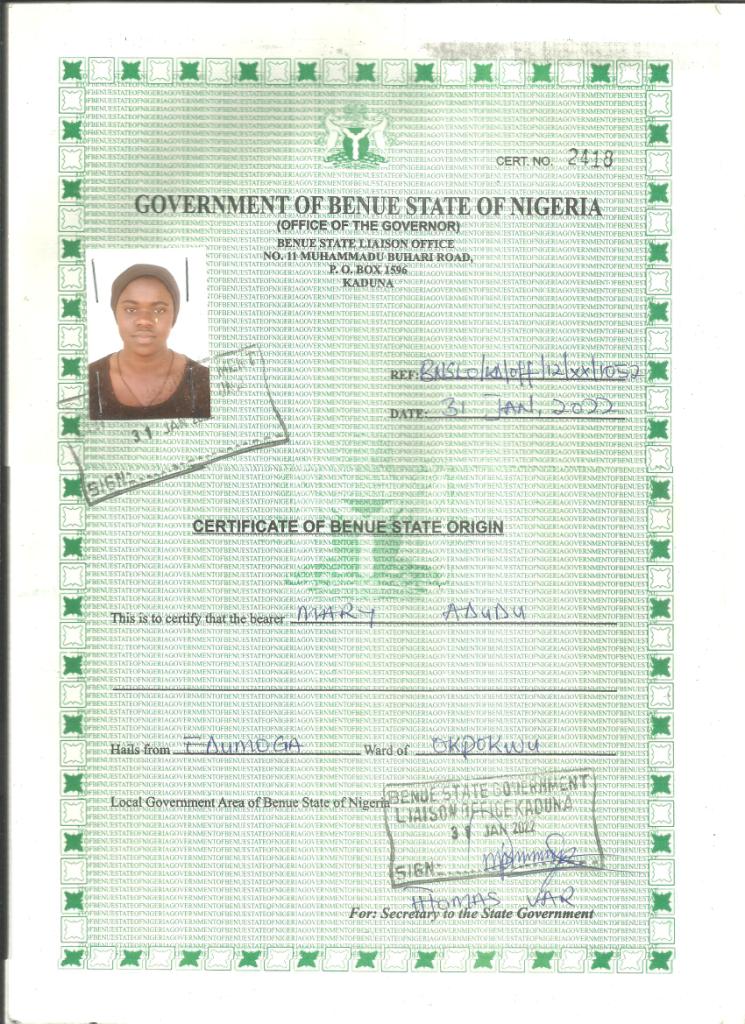 CERT. NO. 2418
GOVERNMENT OF BENUE STATE OF NIGERIA
(OFFICE OF THE GOVERNOR)
BENUE STATE LIAISON OFFICE
NO. 11 MUHAMMADU BUHARI ROAD,
P. O. BOX 1596
KADUNA
REF: BNSLO/KD/Off/12/XX/1052
DATE: 31 JAN, 2022
31 JAN
SIGN:
CERTIFICATE OF BENUE STATE ORIGIN
This is to certify that the bearer MARY ADUDU
Hails from EDUMOGA Ward of OKPOKWU
Local Government Area of Benue State of Nigeria
BENUE STATE GOVERNMENT
LIAISON OFFICE KADUNA
31 JAN 2022
SIGN:
VAR
For: Secretary to the State Government